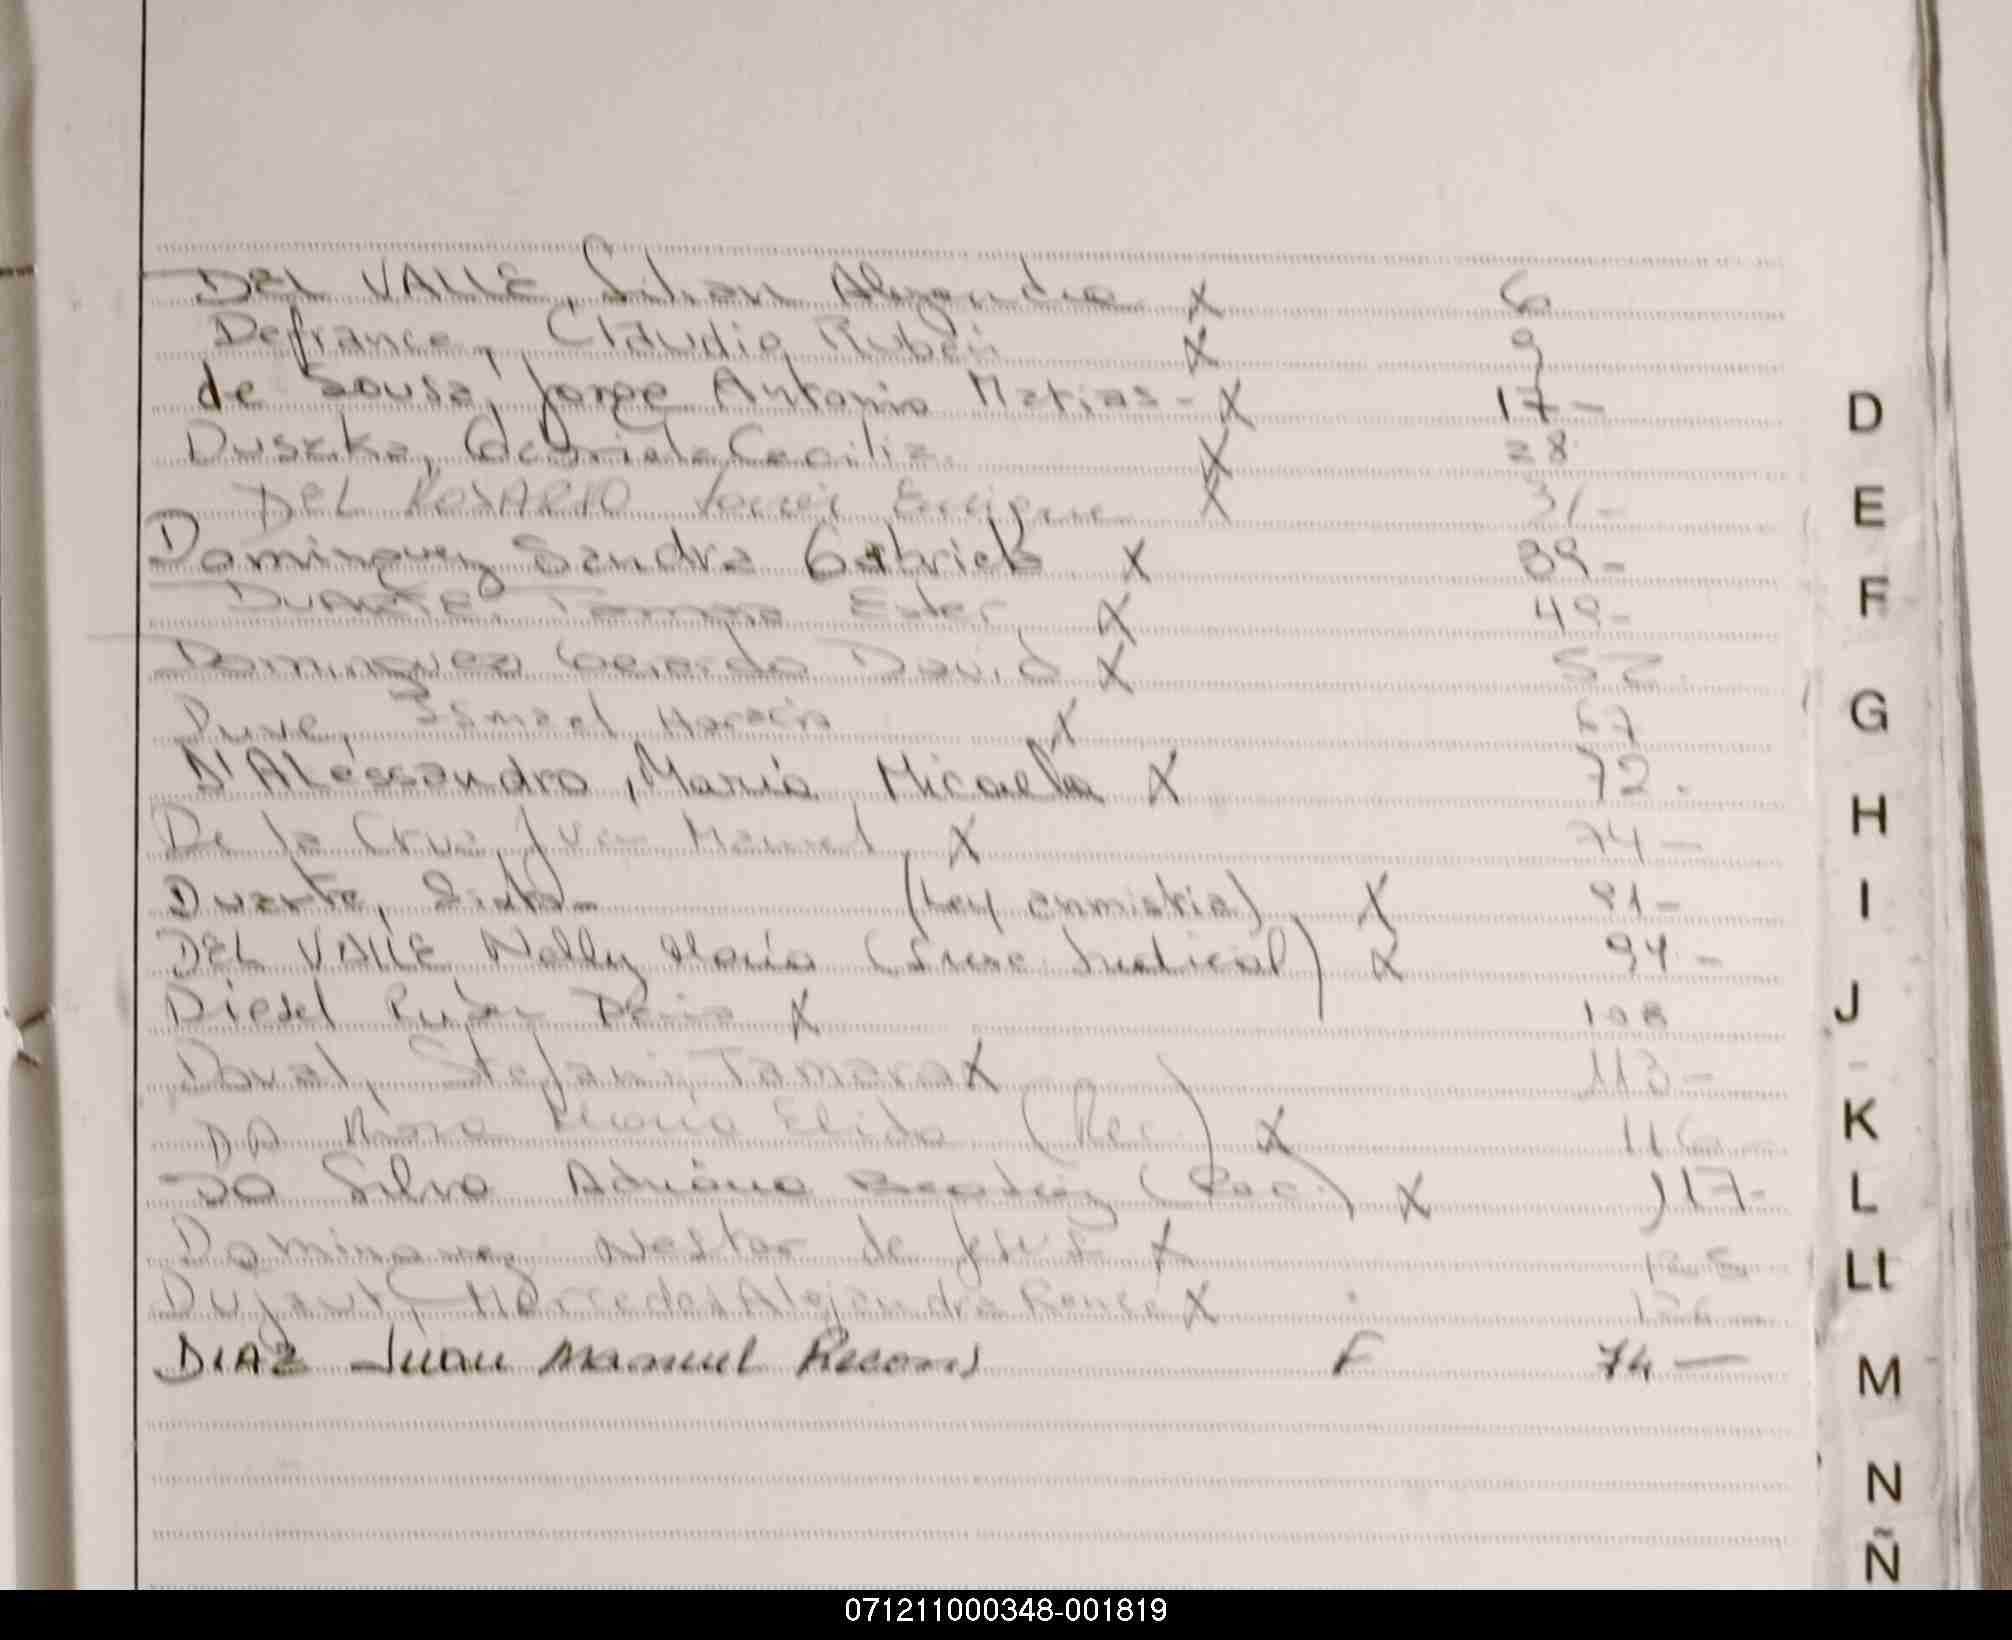 DEL VALLE, Silvan Alejandra X 6
Defrance, Claudio Rubén X 9
de Sousa, Jorge Antonio Matias - X 17 -
Duszka, Gabriela Cecilia X 28
DEL ROSARIO Javier Enrique X 31 -
Dominguez Sandra Gabriela X 39 -
DUARTE, Tamara Ester X 49 -
Dominguez Gerardo David X 52
Duve, Ismael Horacio X 67
D'Alessandro, María Micaela X 72.
De la Cruz, Juan Manuel X 74 -
Duarte, (Ley anmistia) X 91 -
DEL VALLE Nelly María (Suse Judicial) X 94 -
Diesel Ruben Dario X 108
Doval, Stefani Tamara X 113 -
DA Mora María Elida (Rec.) X 116 -
Da Silva Adriana Beatriz (Rec.) X 117 -
Dominguez Nestor de Jesus X
Dujaut, Mercedes Alejandra Renée X
DIAZ Juan Manuel Recons F 74 —
D
E
F
G
H
I
J
K
L
Ll
M
N
Ñ
071211000348-001819